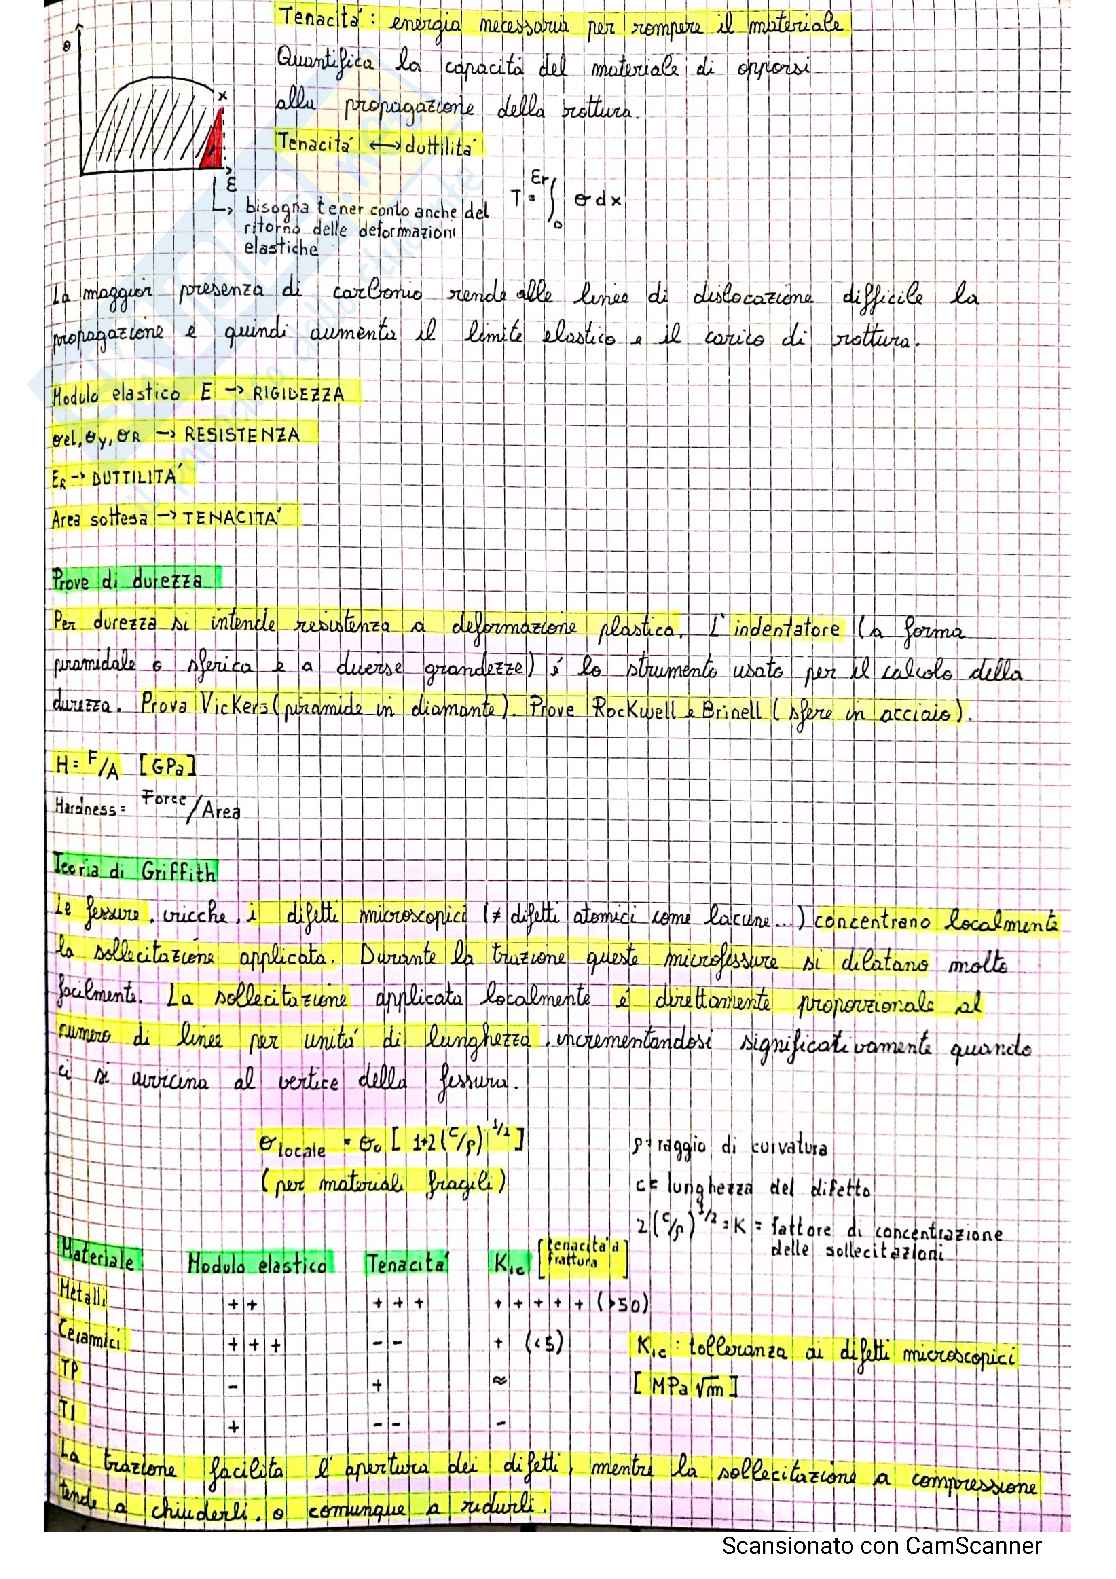 Tenacità: energia necessaria per rompere il materiale
Quantifica la capacità del materiale di opporsi
alla propagazione della rottura.
Tenacità ↔ duttilità
σ
x
ε
↳ bisogna tener conto anche del
ritorno delle deformazioni
elastiche
T = ∫₀^εr σ dx
La maggior presenza di carbonio rende alle linee di dislocazione difficile la
propagazione e quindi aumenta il limite elastico e il carico di rottura.
Modulo elastico E → RIGIDEZZA
σel, σy, σR → RESISTENZA
ER → DUTTILITÀ
Area sottesa → TENACITÀ
Prove di durezza
Per durezza si intende resistenza a deformazione plastica. L'indentatore (a forma
piramidale o sferica e a diverse grandezze) è lo strumento usato per il calcolo della
durezza. Prova Vickers (piramide in diamante). Prove Rockwell e Brinell (sfere in acciaio).
H = F/A [GPa]
Hardness = Force/Area
Teoria di Griffith
Le fessure, cricche, i difetti microscopici (≠ difetti atomici come lacune...) concentrano localmente
la sollecitazione applicata. Durante la trazione queste microfessure si dilatano molto
facilmente. La sollecitazione applicata localmente è direttamente proporzionale al
numero di linee per unità di lunghezza, incrementandosi significativamente quando
ci si avvicina al vertice della fessura.
σlocale = σ₀ [1+2(c/ρ)^1/2]
(per materiali fragili)
ρ = raggio di curvatura
c = lunghezza del difetto
2(c/ρ)^1/2 = K = fattore di concentrazione
delle sollecitazioni
Materiale Modulo elastico Tenacità KIC [tenacità a frattura]
Metalli ++ +++ +++++ (>50)
Ceramici +++ -- + (<5)
TP - + ≈
TI + -- -
KIC: tolleranza ai difetti microscopici
[MPa √m]
La trazione facilita l'apertura dei difetti, mentre la sollecitazione a compressione
tende a chiuderli, o comunque a ridurli.
Scansionato con CamScanner